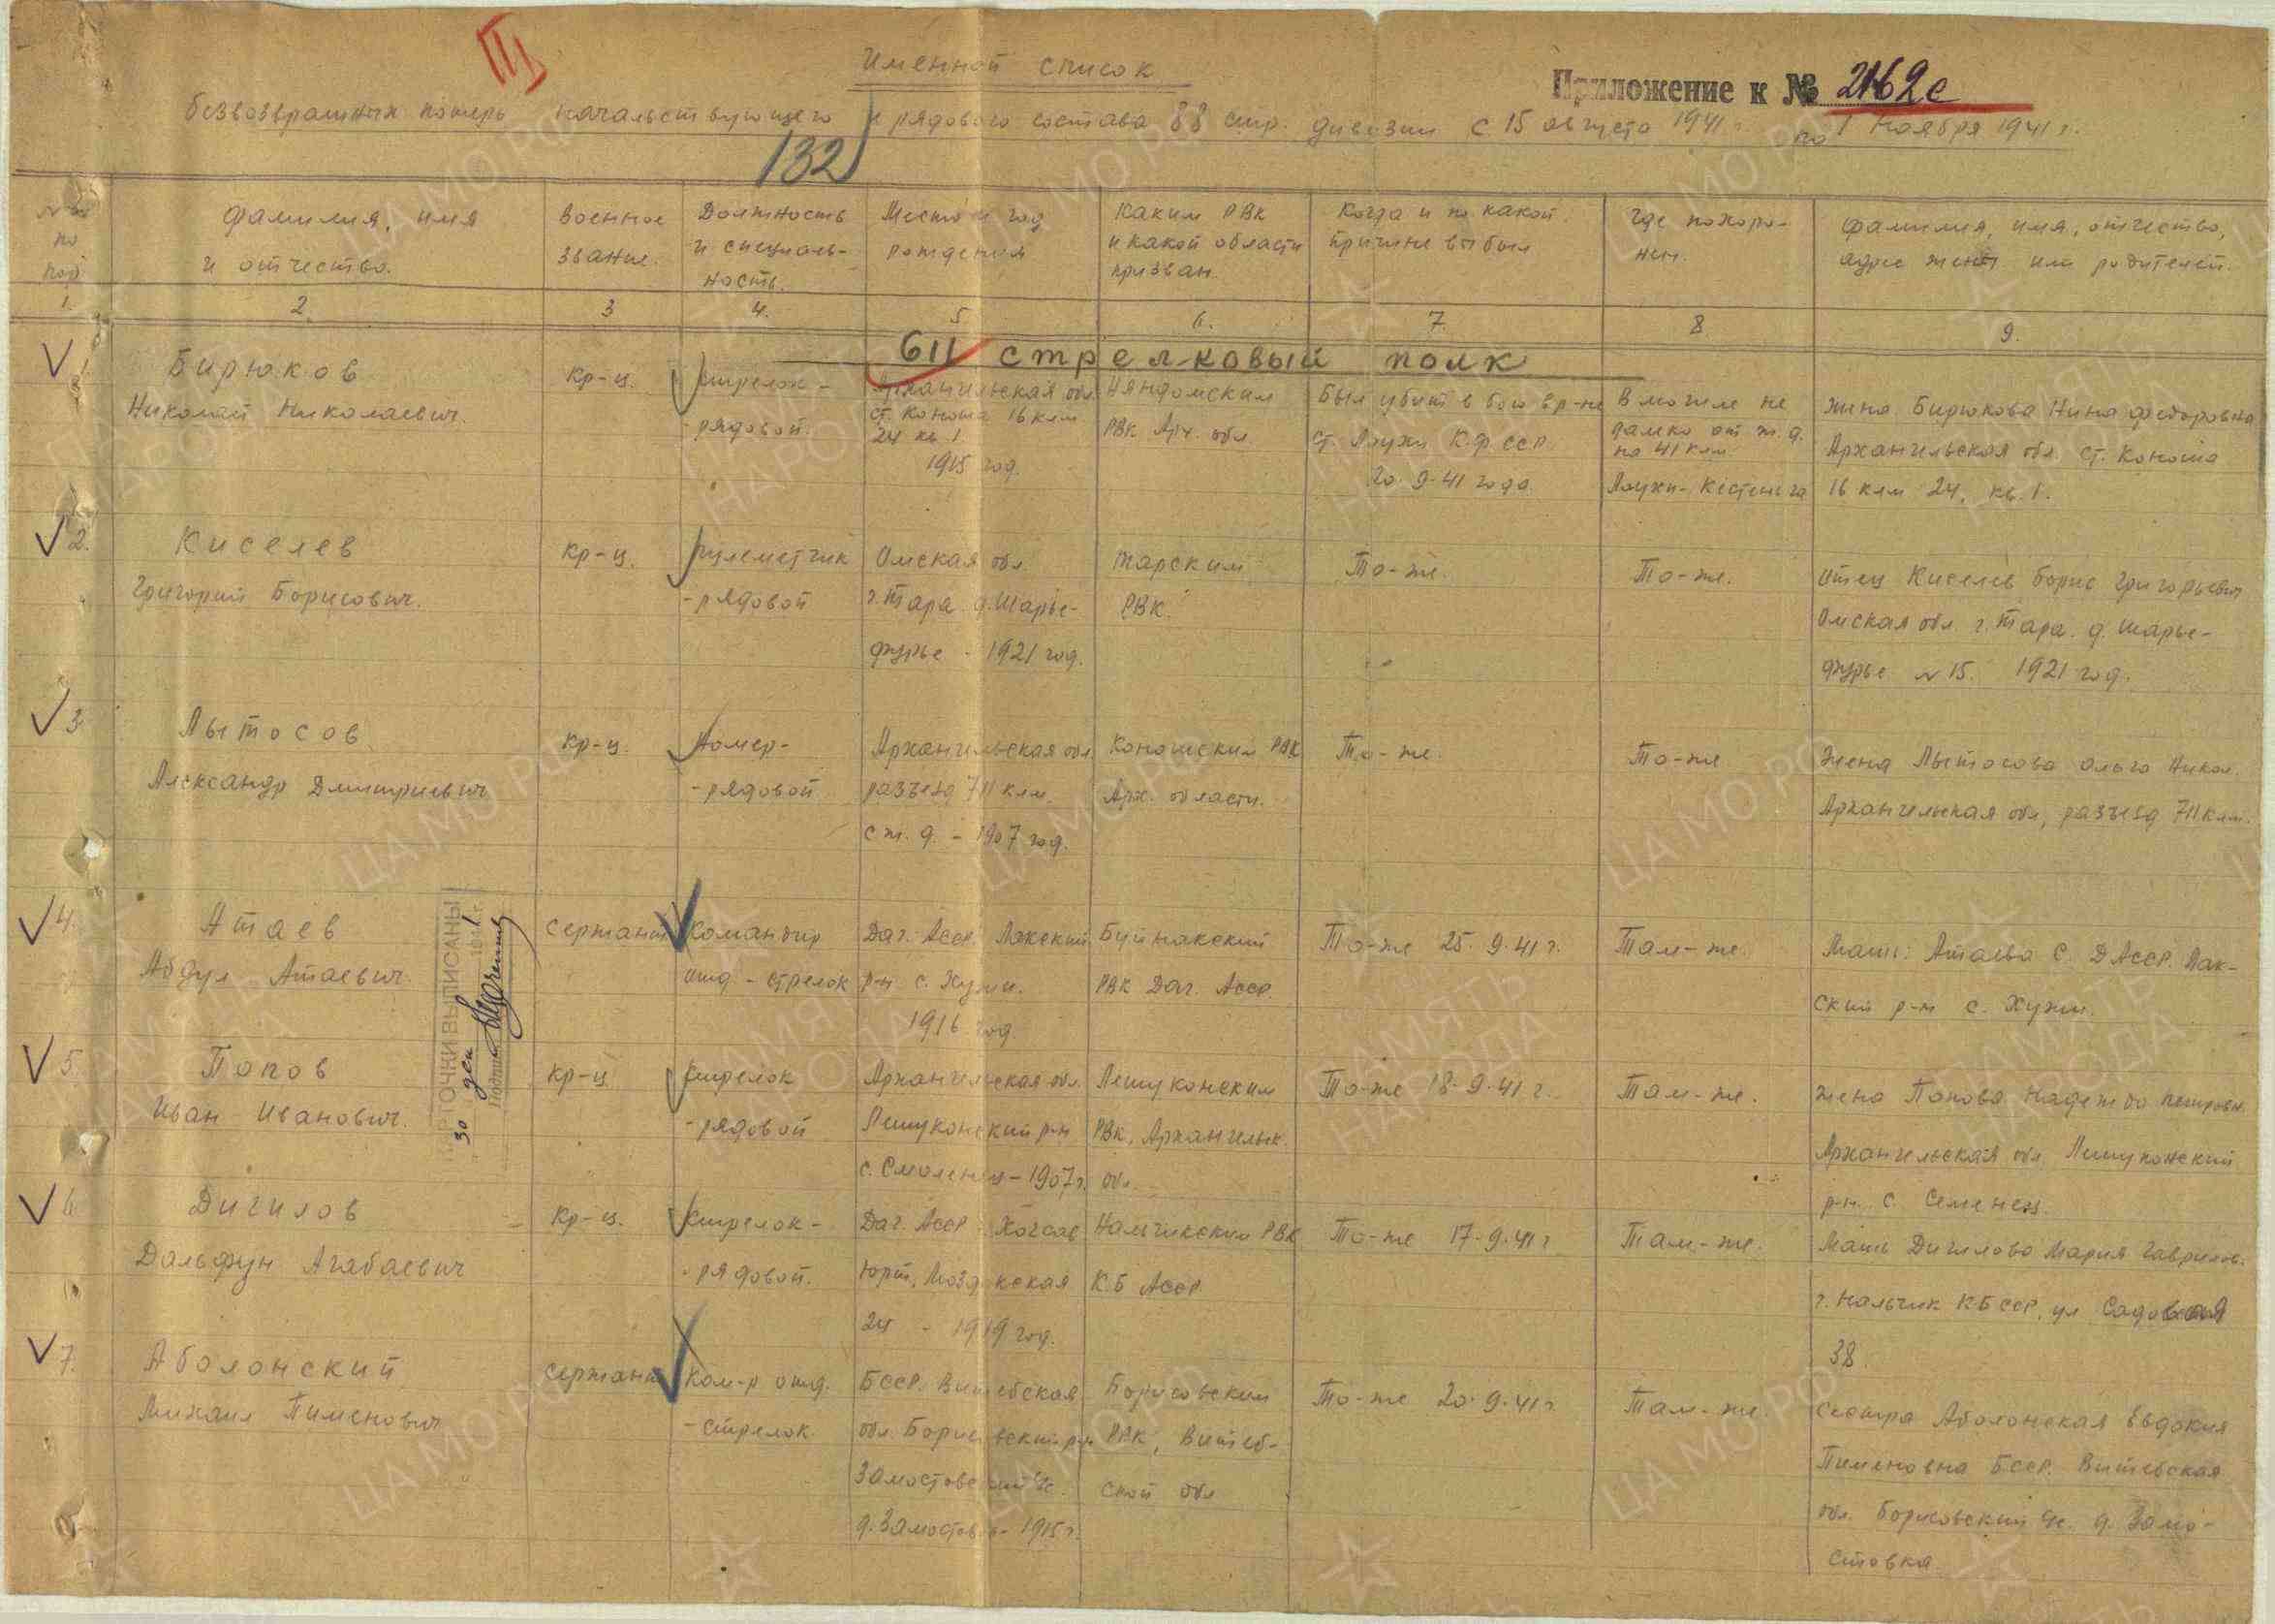 Именной список
Приложение к № 2162с
безвозвратных потерь начальствующего и рядового состава 88 стр. дивизии с 15 августа 1941 г. по 1 ноября 1941 г.
132
№№ по пор.
Фамилия, имя
и отчество.
Военное
звание.
Должность
и специаль-
ность.
Место и год
рождения
Каким РВК
и какой области
призван.
Когда и по какой
причине выбыл
Где похоро-
нен.
Фамилия, имя, отчество,
адрес жены или родителей.
1. 2. 3 4. 5 6. 7. 8 9.
611 стрелковый полк
1.
Бирюков
Николай Николаевич.
кр-ц.
стрелок -
- рядовой.
Архангельская обл.
ст. Коноша 16 клм
24 кв. 1.
1915 год.
Няндомским
РВК Арх. обл.
Был убит в бою в р-не
ст. Лоухи К.Ф ССР.
20.9.41 года.
В могиле не
далеко от ж.д.
на 41 клм
Лоухи-Кестеньга
жена Бирюкова Нина Федоровна
Архангельская обл. ст. Коноша
16 клм 24, кв. 1.
2.
Киселев
Григорий Борисович.
кр-ц.
пулеметчик
- рядовой
Омская обл
г. Тара д. Шарье-
фурье - 1921 год.
Тарским
РВК.
То-же.
То-же.
Отец Киселев Борис Григорьевич
Омская обл. г. Тара. д. Шарье-
фурье № 15. 1921 год.
3
Лытосов
Александр Дмитриевич
кр-ц.
Номер-
- рядовой
Архангельская обл
разъезд 711 клм.
с ж.д. - 1907 год.
Коношским РВК
Арх. области.
То-же.
То-же
Жена Лытосова Ольга Никол.
Архангельская обл, разъезд 711 клм.
4.
Атаев
Абдул Атаевич.
Сержант
Командир
отд - стрелок
Даг. Асср. Лакский
р-н с. Хули.
1916 год
Буйнакский
РВК Даг. Асср.
То-же 25.9.41 г.
Там-же.
Мать: Атаева С. ДАССР. Лак-
ский р-н с. Хули.
КАРТОЧКИ ВЫПИСАНЫ
30 дек 1941 г.
Подпись
5.
Попов
Иван Иванович.
кр-ц
стрелок
- рядовой
Архангельская обл.
Лешуконский р-н
с. Смоленец - 1907 г.
Лешуконским
РВК, Архангельск.
обл.
То-же 18.9.41 г.
Там-же.
жена Попова Надежда Петровн.
Архангельская обл Лешуконский
р-н. с. Семенец.
6
Дигилов
Дальфун Агабаевич
кр-ц.
стрелок-
- рядовой.
Даг. Асср
юрт, Моздокская
24 - 1919 год.
Нальчикским РВК
К.Б Асср.
То-же 17.9.41 г
Там-же.
Мать Дигилова Мария Гаврилов.
г. Нальчик КБССР, ул Садовая
38.
7.
Аболонский
Михаил Пименович
Сержант
Ком-р отд.
- стрелок.
БССР. Витебская
обл. Борисовский р-н
Замостовский с/с.
д. Замостовка - 1915 г.
Борисовским
РВК, Витеб-
ской обл
То-же 20.9.41 г
Там-же.
Сестра Аболонская Евдокия
Пименовна БССР. Витебская
обл. Борисовский р-н. д. Замо-
стовка.
ЦАМО РФ
ПАМЯТЬ
НАРОДА